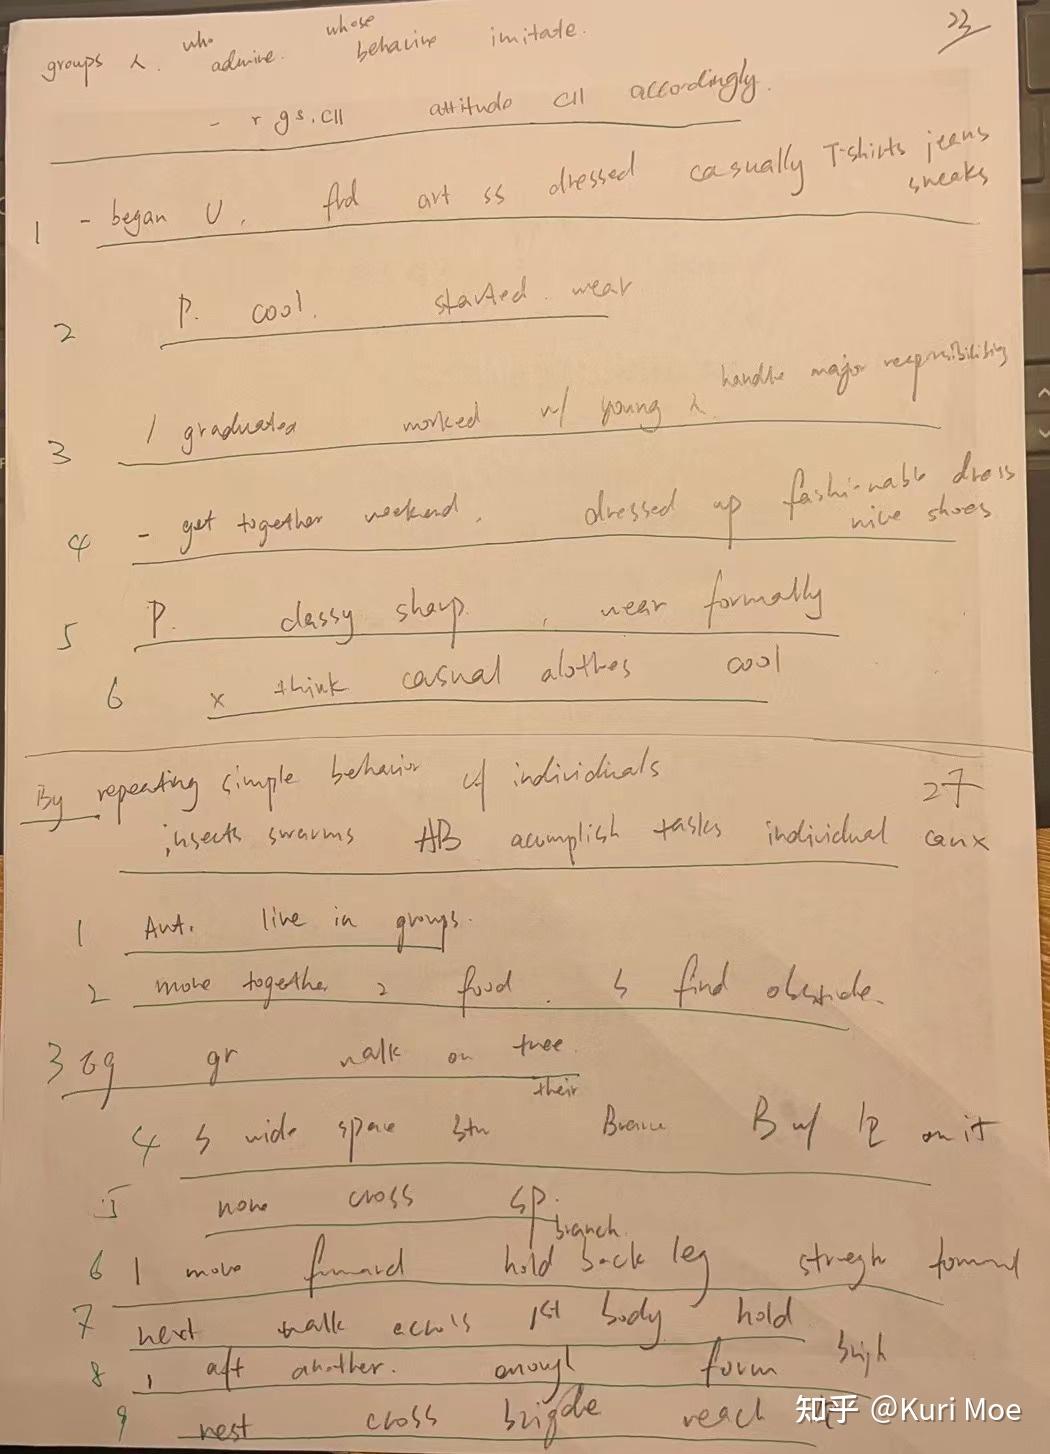 who whose 23
groups 人. admire. behavior imitate.
- r gs. Cll attitude Cll accordingly.
1 - began U. fnd art ss dressed casually T-shirts jeans
sneaks
2 P. cool. started. wear
handle major responsibilities
3 / graduated worked w/ young 人
4 - get together weekend. dressed up fashionable dress
nice shoes
5 P. classy sharp. , wear formally
6 x think casual clothes cool
By repeating simple behavior w/ individuals 27
insects swarms AB acomplish tasks individual can x
1 Ant. live in groups.
2 move together 2 food. find obstacle.
3 Eg gr walk on tree.
their
4 wide space btn B w/ on it
5 none cross sp.
branch.
6 1 move forward hold back leg forward
7 next walk across 1st body hold
8 , aft another. enough form brigh
9 nest cross brigde reach
知乎 @Kuri Moe